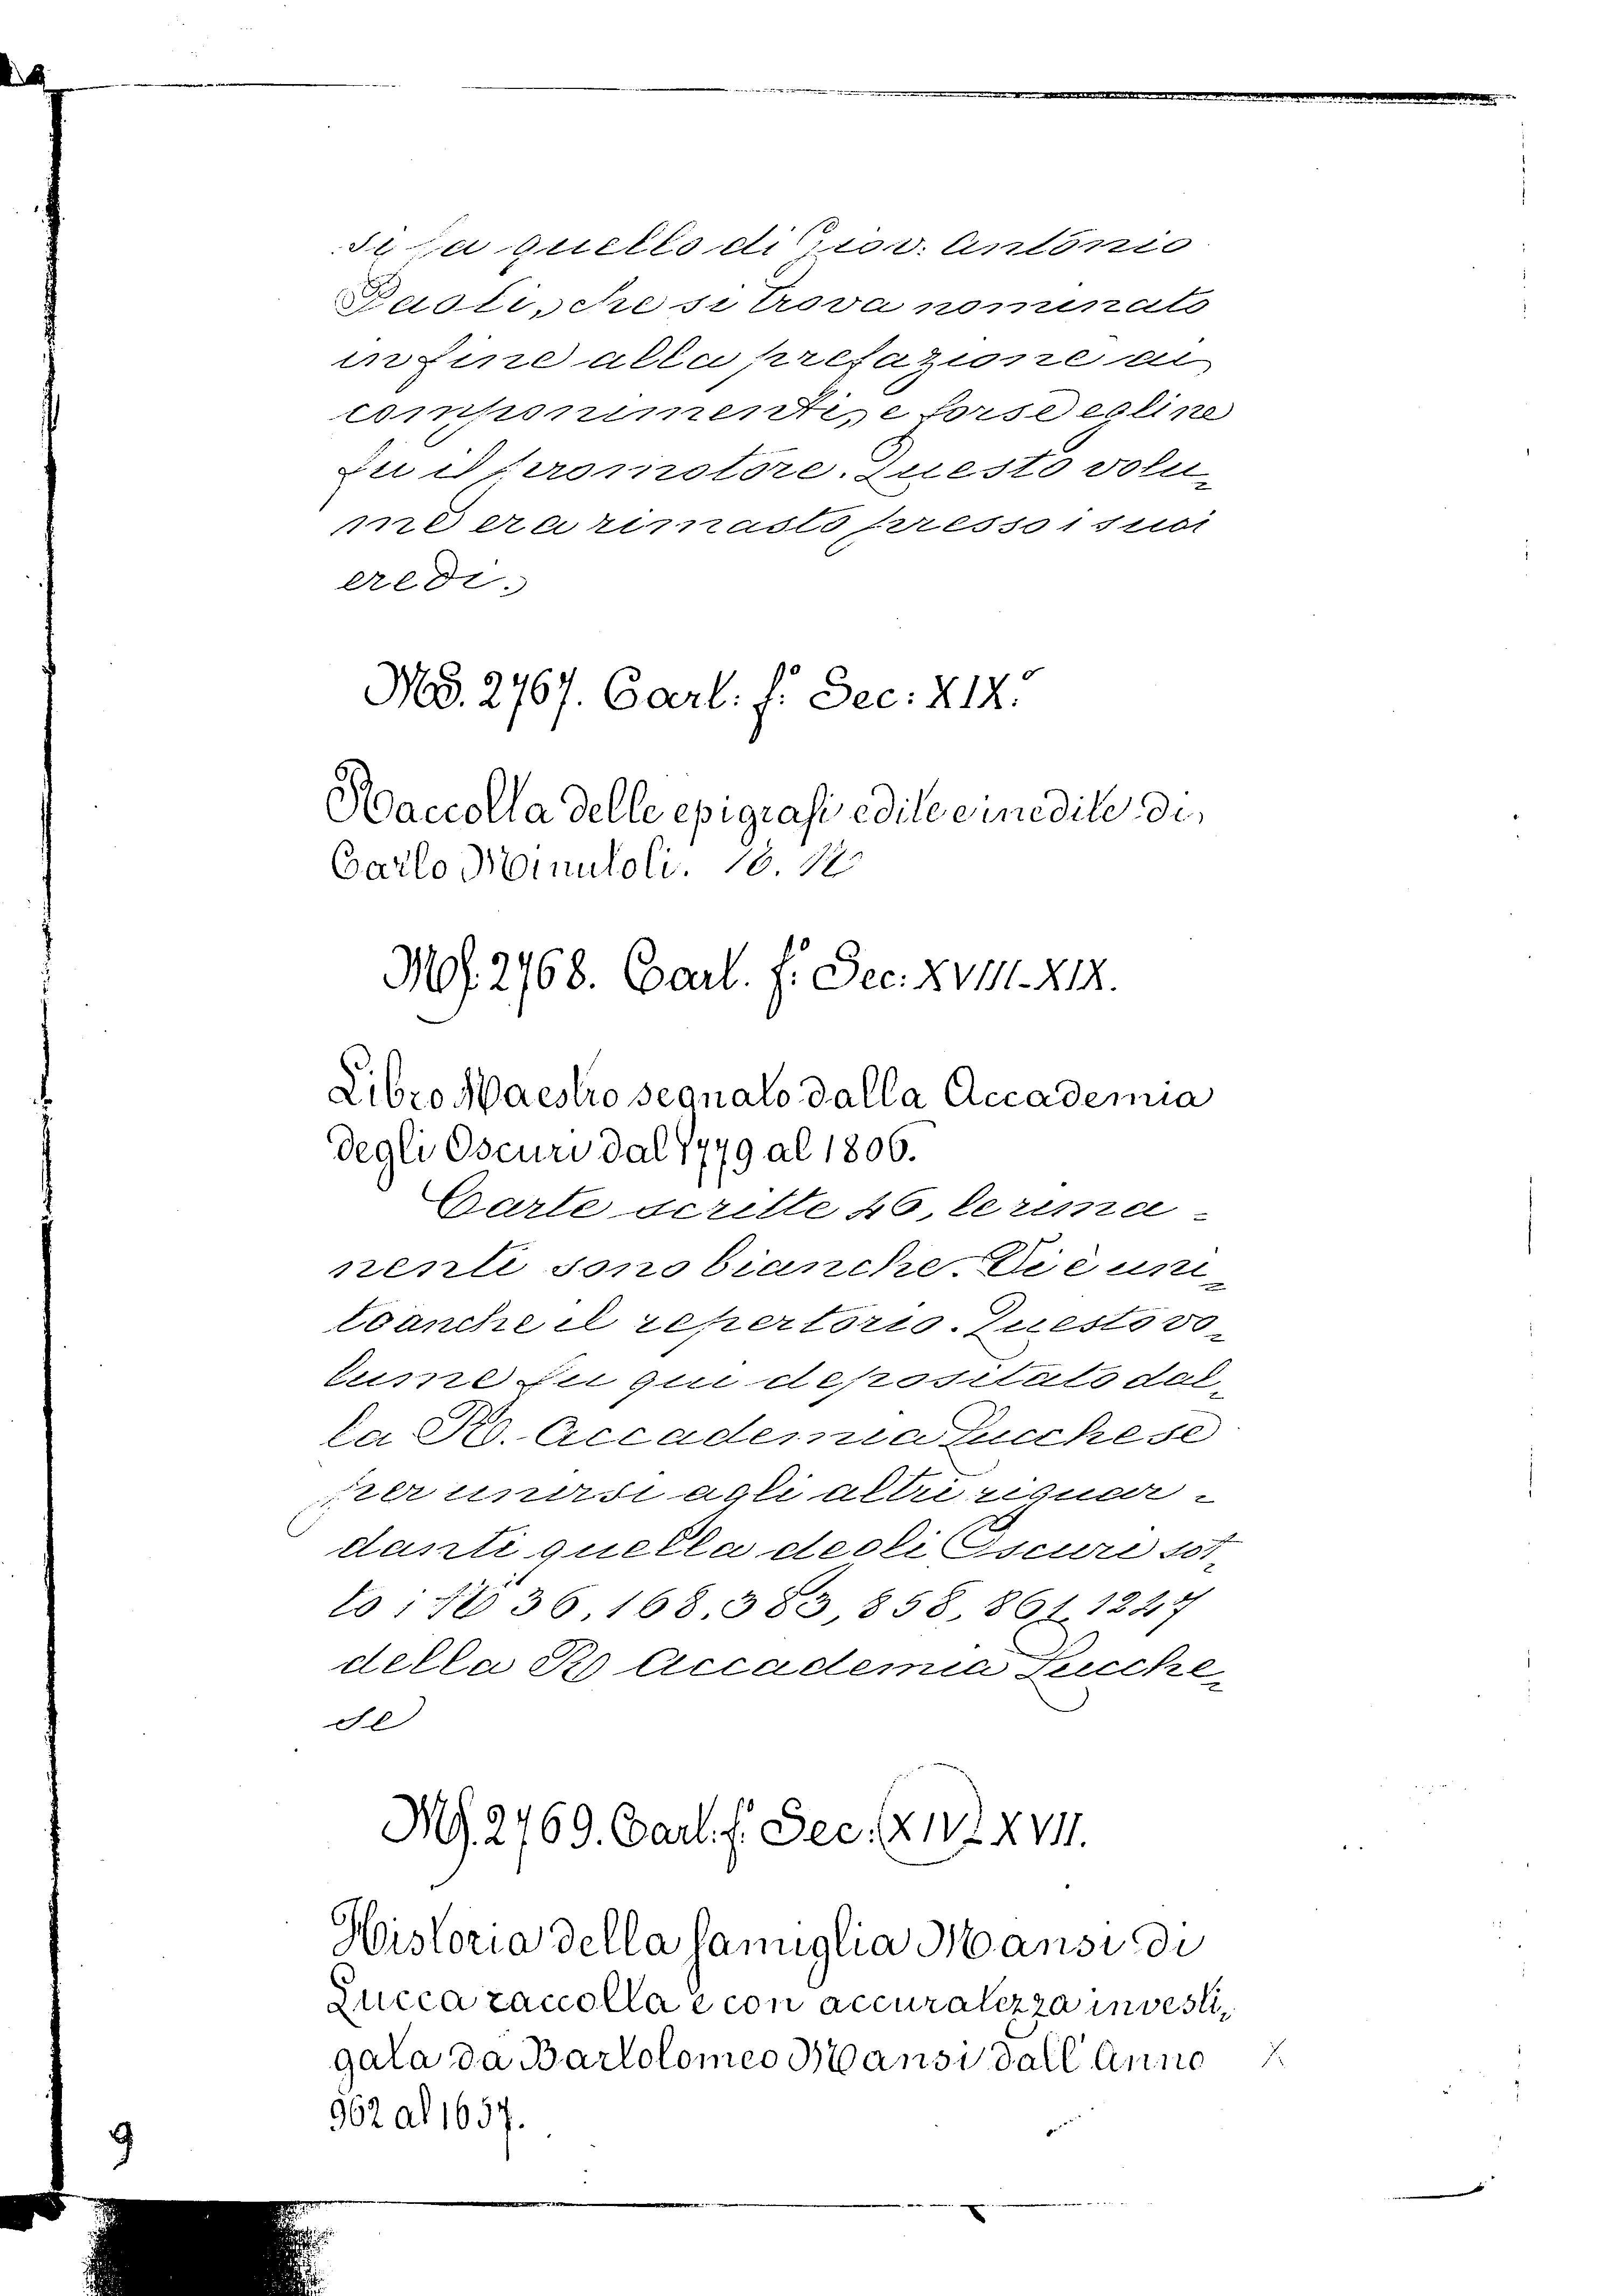 si fa quello di Giov. Antonio
Paoli, che si trova nominato
in fine alla prefazione ai
componimenti, e forse egli ne
fu il promotore. Questo volu-
me era rimasto presso i suoi
eredi.
MS. 2767. Cart: f.º Sec: XIX.º
Raccolta delle epigrafi edite e inedite di
Carlo Minutoli.
Ms. 2768. Cart. f.º Sec: XVIII-XIX.
Libro Maestro segnato dalla Accademia
degli Oscuri dal 1779 al 1806.
Carte scritte 46, le rima-
nenti sono bianche. Vi è uni-
to anche il repertorio. Questo vo-
lume fu qui depositato dal-
la R. Accademia Lucchese
per unirsi agli altri riguar-
danti quella degli Oscuri sot-
to i Nº 36, 168, 383, 858, 861, 1247
della R. Accademia Lucche-
se
Ms. 2769. Cart. f.º Sec. (XIV?) XVII.
Historia della famiglia Mansi di
Lucca raccolta e con accuratezza investi-
gata da Bartolomeo Mansi dall'Anno
962 al 1657.
9